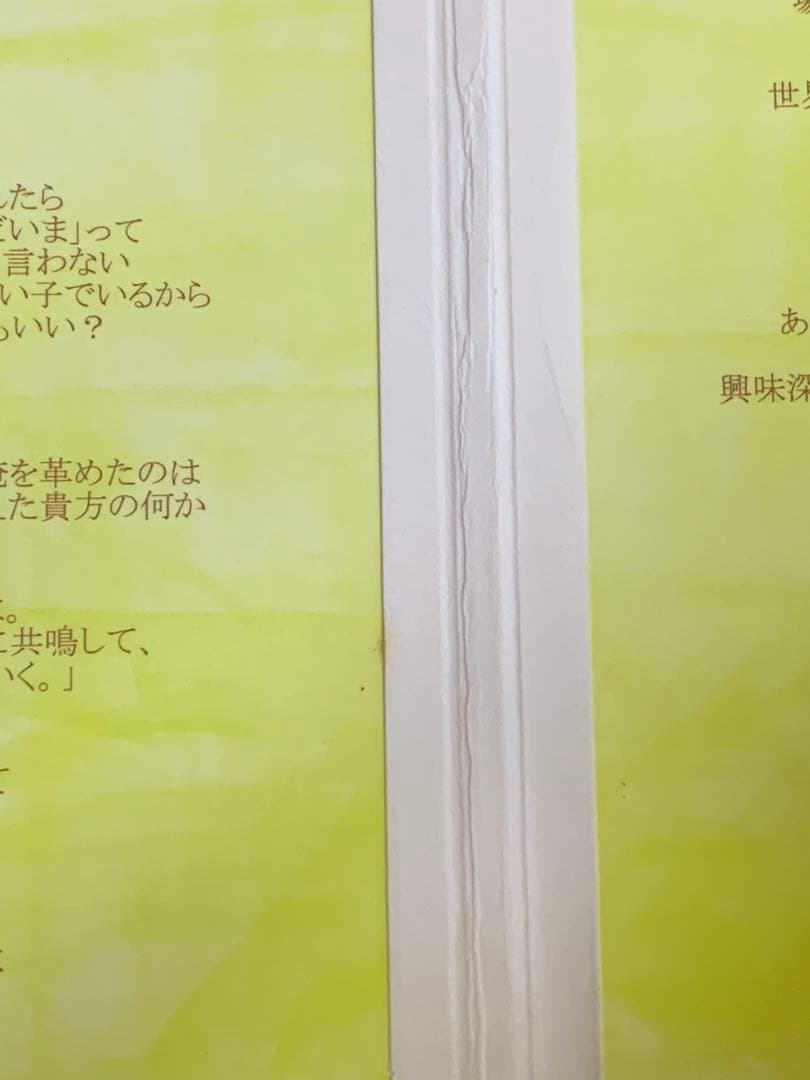 んたら
だいま」って
言わない
い子でいるから
もいい？
を革めたのは
た貴方の何か
。
に共鳴して、
いく。」
て
世界
あ
興味深